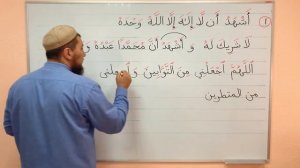 ١ أَشْهَدُ أَن لَا إِلَهَ إِلَّا اللَّهُ وَحْدَهُ
لَا شَرِيكَ لَهُ وَ أَشْهَدُ أَنَّ مُحَمَّدًا عَبْدُهُ وَ
اَللَّهُمَّ اجْعَلْنِي مِنَ التَّوَّابِينَ وَ اجْعَلْنِي
مِنَ المتطهرين